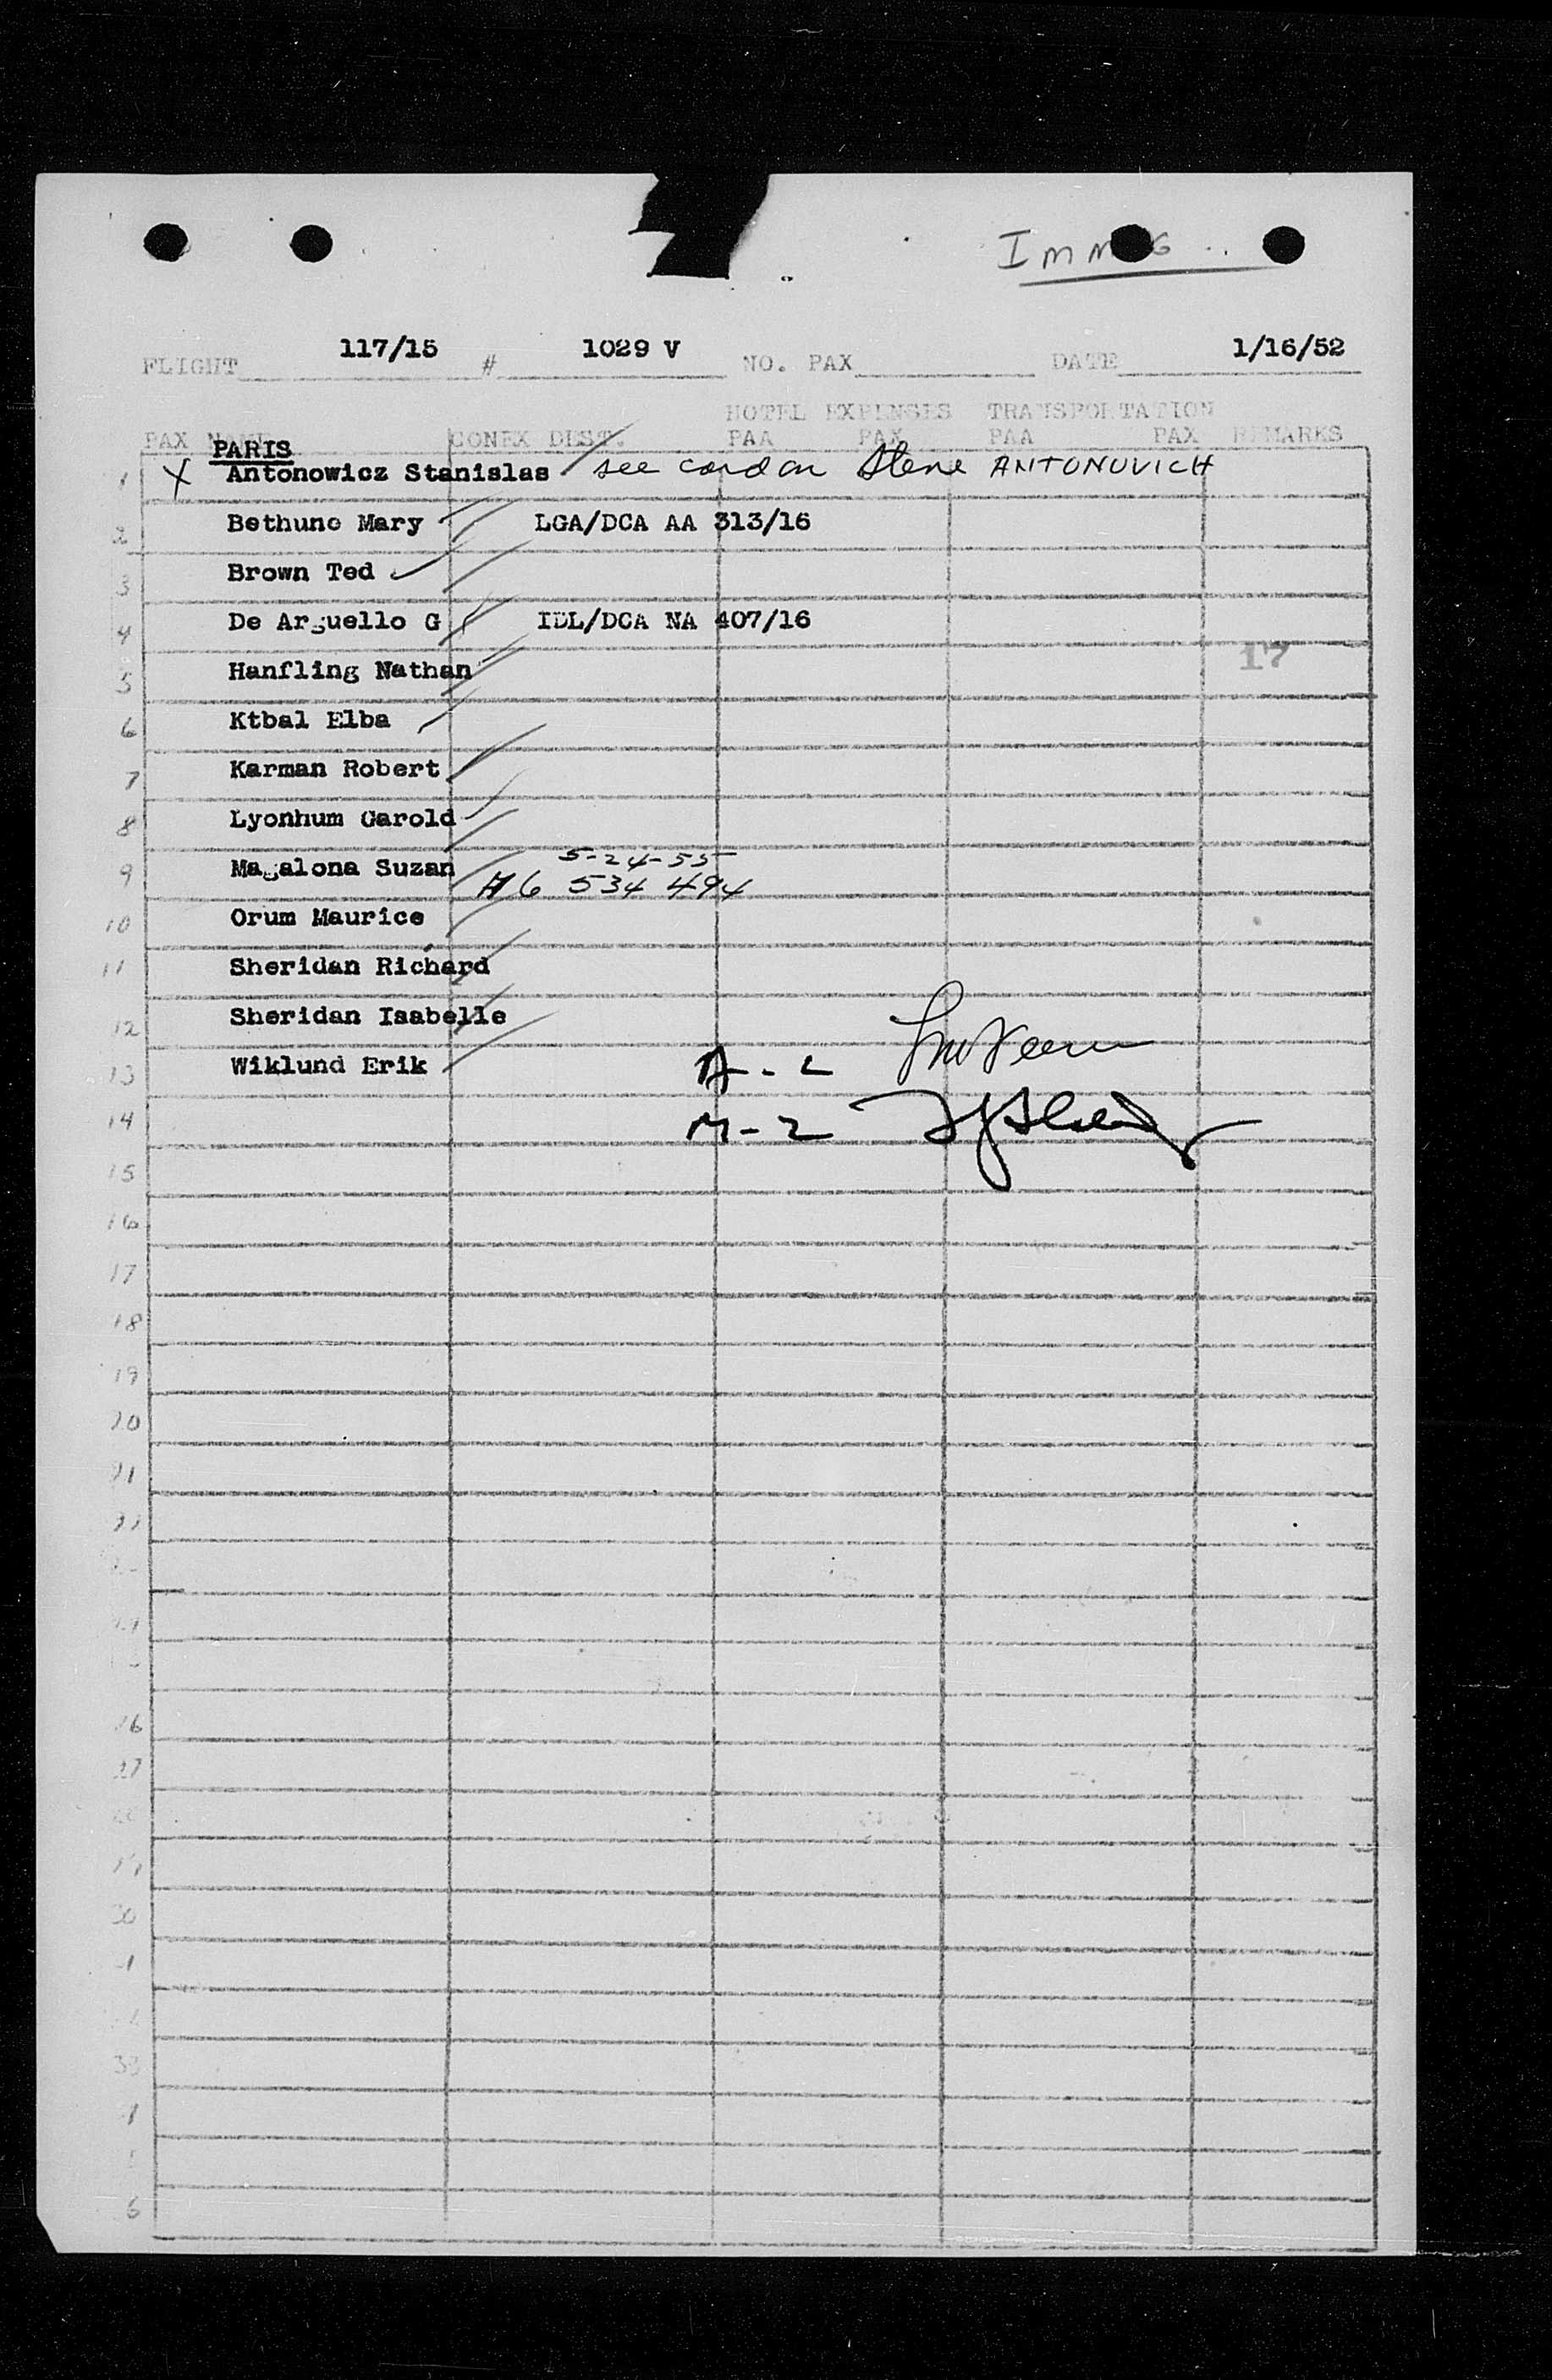 IMMIG
FLIGHT 117/15 # 1029 V NO. PAX DATE 1/16/52
HOTEL EXPENSES TRANSPORTATION
PAX NAME CONEX DEST. PAA PAX PAA PAX REMARKS
PARIS
1 X Antonowicz Stanislas see card on Steve ANTONOVICH
2 Bethune Mary LGA/DCA AA 313/16
3 Brown Ted
4 De Arguello G IDL/DCA NA 407/16
17
5 Hanfling Nathan
6 Ktbal Elba
7 Karman Robert
8 Lyonhum Garold
5-24-55
9 Magalona Suzan A6 534 494
10 Orum Maurice
11 Sheridan Richard
12 Sheridan Isabelle
13 Wiklund Erik A-2
14 M-2
15
16
17
18
19
20
21
22
26
27
30
33
6